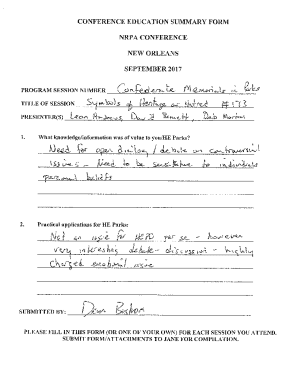 CONFERENCE EDUCATION SUMMARY FORM
NRPA CONFERENCE
NEW ORLEANS
SEPTEMBER 2017
PROGRAM SESSION NUMBER Confederate Memorials in Parks
TITLE OF SESSION Symbols of Heritage or Hatred #173
PRESENTER(S) Leon Andrews, David Barnett, Deb
1. What knowledge/information was of value to you/HE Parks?
Need for open dialog / debate on controversial
issues - Need to be sensitive to individuals
personal beliefs
2. Practical applications for HE Parks:
Not an issue for HEPD per se - however
very interesting debate - discussion - highly
charged emotional issue
SUBMITTED BY: Dean
PLEASE FILL IN THIS FORM (OR ONE OF YOUR OWN) FOR EACH SESSION YOU ATTEND.
SUBMIT FORM/ATTACHMENTS TO JANE FOR COMPILATION.